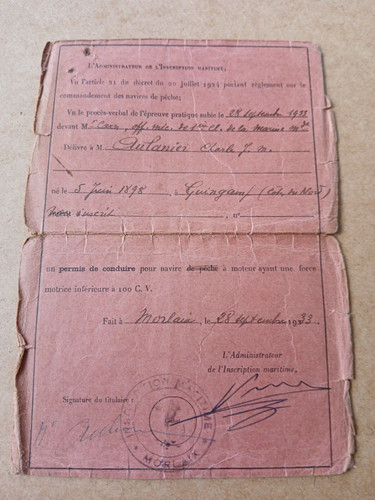 L'ADMINISTRATEUR DE L'INSCRIPTION MARITIME,
Vu l'article 21 du décret du 20 juillet 1921 portant règlement sur le
commandement des navires de pêche;
Vu le procès-verbal de l'épreuve pratique subie le 28 septembre 1933
devant Mr Caër, off. de 1ère Cl. de la Marine
Délivre à M Aulanier Charle J. M.
né le 5 Juin 1898, Guingamp (Côtes du Nord)
inscrit, n°
un permis de conduire pour navire de pêche à moteur ayant une force
motrice inférieure à 100 C. V.
Fait à Morlaix, le 28 septembre 1933.
L'Administrateur
de l'Inscription maritime,
Signature du titulaire :
INSCRIPTION MARITIME
MORLAIX